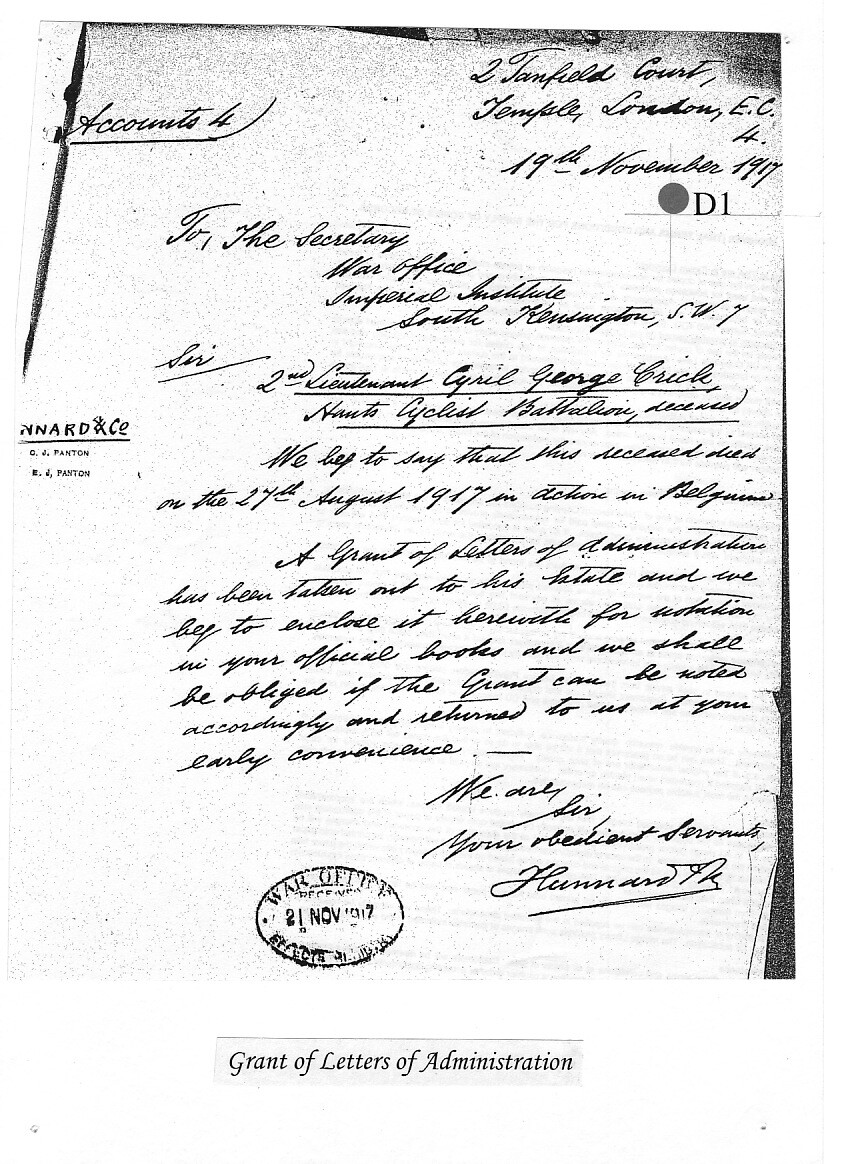 2 Tanfield Court,
Temple, London, E.C.
4.
Accounts 4
19th November 1917
D1
To, The Secretary
War Office
Imperial Institute
South Kensington, S.W. 7
Sir
2nd Lieutenant Cyril George Crick,
Hants Cyclist Battalion, deceased
NNARD & Co
C. J. PANTON
E. J. PANTON
We beg to say that this deceased died
on the 27th August 1917 in action in Belgium
A Grant of Letters of Administration
has been taken out to his Estate and we
beg to enclose it herewith for notation
in your official books and we shall
be obliged if the Grant can be noted
accordingly and returned to us at your
early convenience. —
We are,
Sir,
Your obedient Servants,
Hunnard
WAR OFFICE
RECEIVED
21 NOV 1917
EFFECTS
Grant of Letters of Administration